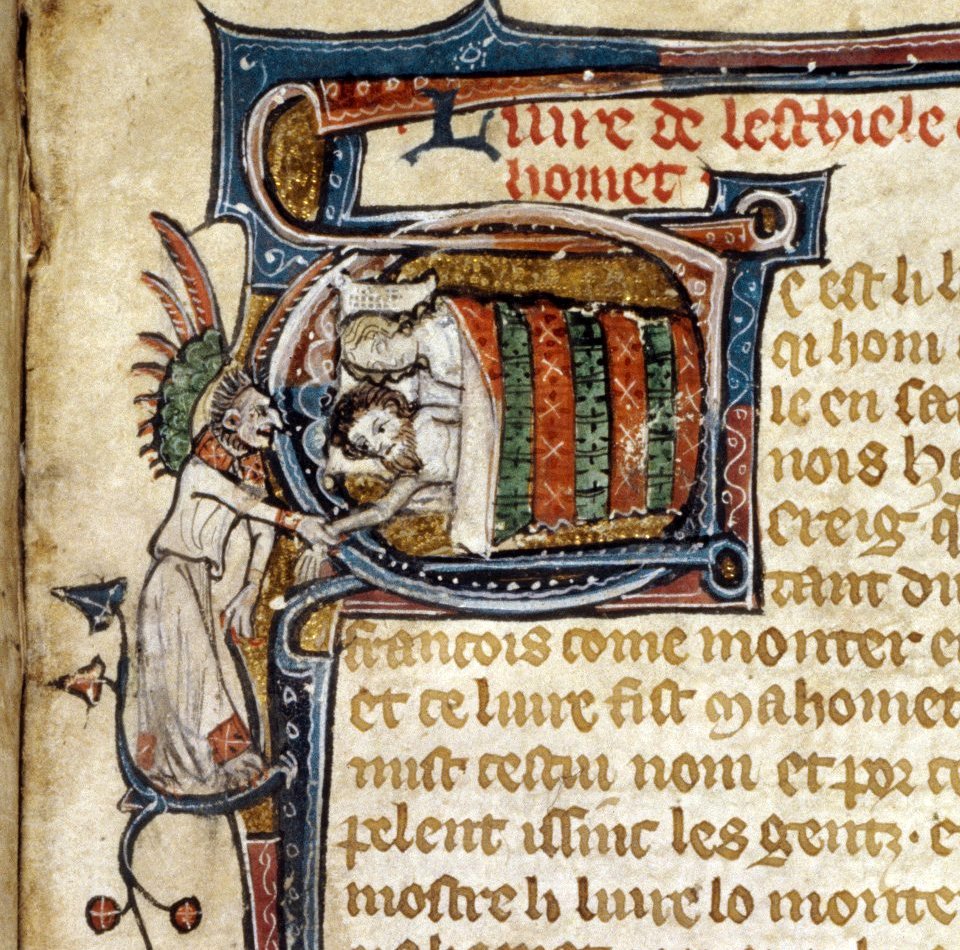 Liure de leschiele
homet
Ce est li
qi hom
le en
nois
creig
tant
francois come monter
et ce liure fist Mahomet
mist cestui nom et por ce
pelent issinc les gentz · e
mostre li liure lo monte